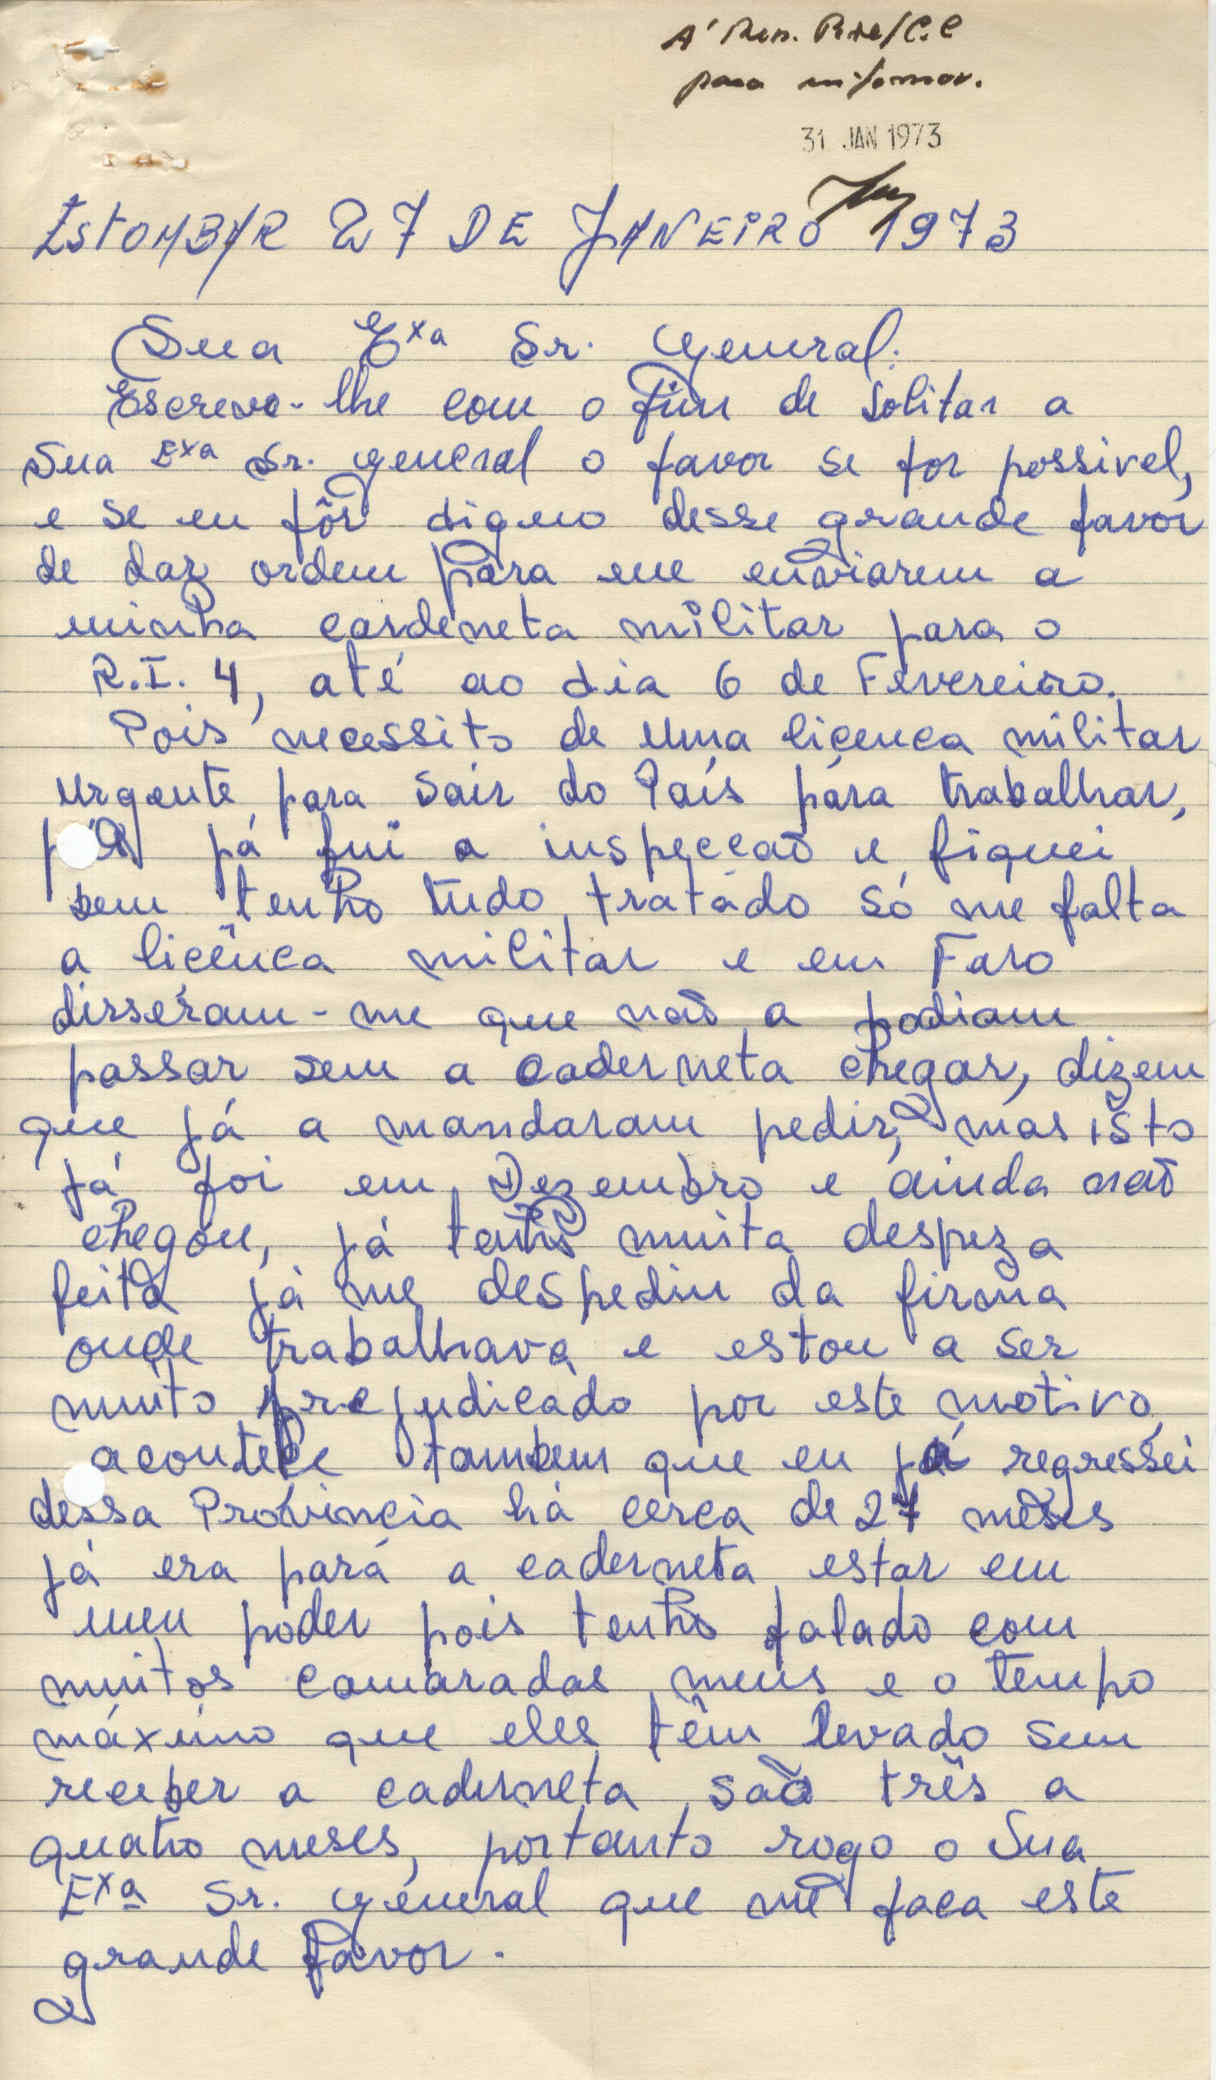 À Rep.
para informar.
31 JAN 1973
EstOMBAR 27 DE JANEiRO 1973
Sua Exa Sr. General.
Escrevo-lhe com o fim de Solitar a
Sua Exa Sr. General o favor se for possivel,
e se eu fôr digno desse grande favor
de daz ordem para me enviarem a
minha cardeneta militar para o
R.I. 4, até ao dia 6 de Fevereiro.
Pois necessito de uma licenca militar
urgente para sair do País para trabalhar,
já fui a inspeccaõ e fiquei
bem tenho tudo tratado só me falta
a licênca militar e em Faro
disseram-me que naõ a podiam
passar sem a caderneta chegar, dizem
que já a mandaram pedir, mas isto
já foi em Dezembro e ainda naõ
chegou, já tenho muita despeza
feita já me despedin da firma
onde trabalhava e estou a ser
muito prejudicado por este motivo,
acontece tambem que eu já regressei
dessa Província há cerca de 27 mêses
já era para a caderneta estar em
meu poder pois tenho falado com
muitos camaradas meus e o tempo
máximo que eles têm levado sem
receber a caderneta saõ três a
quatro meses, portanto rogo o Sua
Exa Sr. General que me faca este
grande favor.